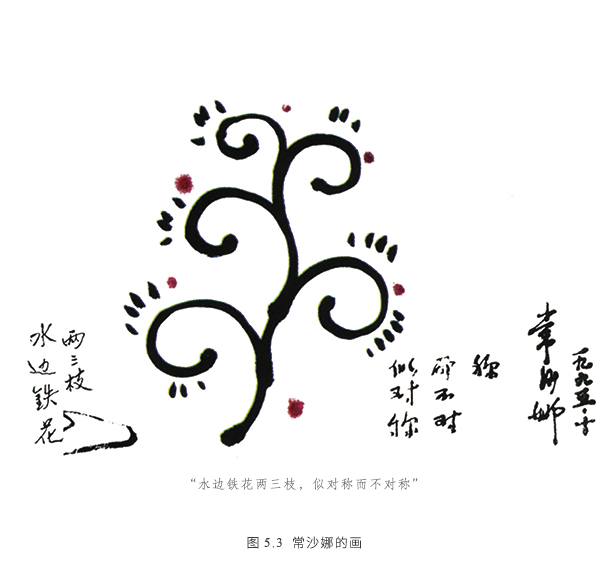 水边鉄花
两三枝
似对称
而不对
称
常沙娜
一九九五·十
“水边铁花两三枝，似对称而不对称”
图 5.3 常沙娜的画